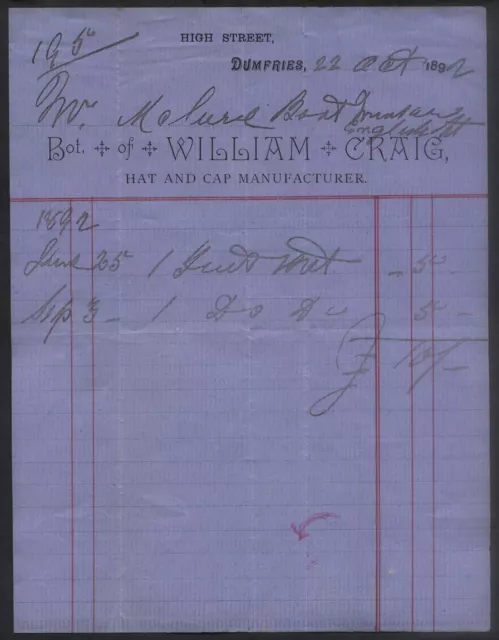 195
HIGH STREET,
DUMFRIES, 22 Oct 1892
Mr. McLurie Boot
English St
Bot. of WILLIAM CRAIG,
HAT AND CAP MANUFACTURER.
1892
June 25 1 Hat - 5 -
Sep 3 - 1 Do Do 5 -
£ 10/-